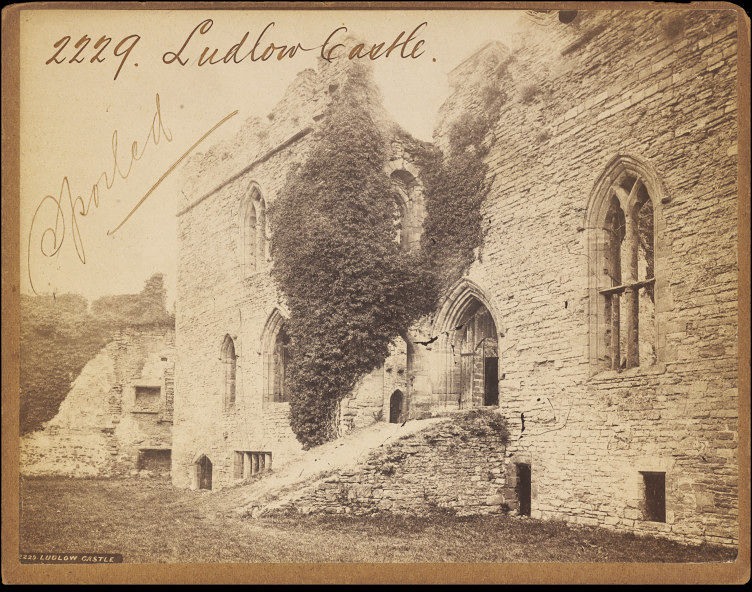 2229. Ludlow Castle.
Spoiled
2229. LUDLOW CASTLE